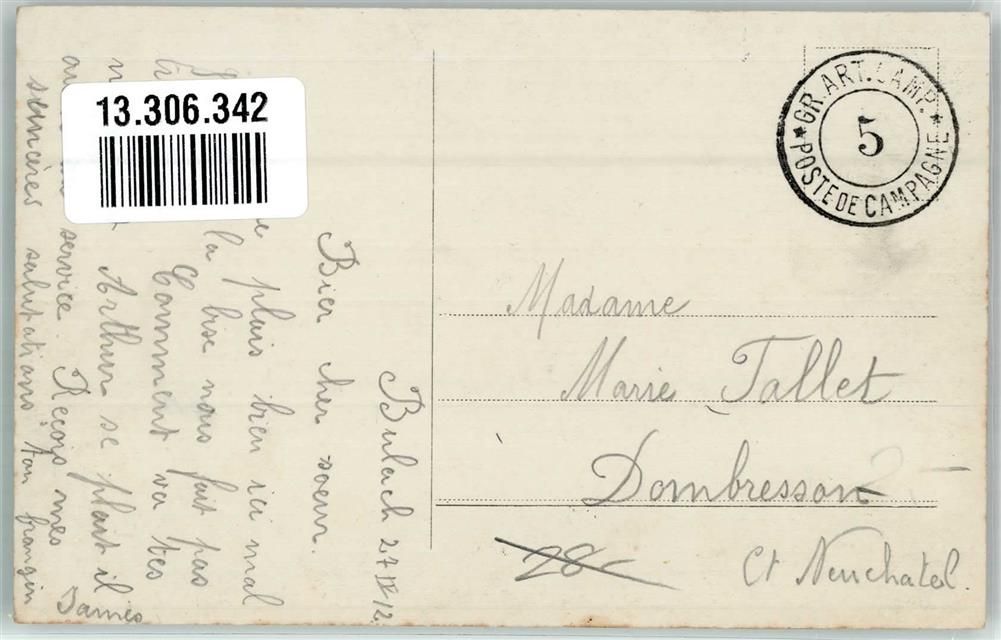 Bulach 27 IX 12.
Bien cher soeur.
plais bien ici mal
la bise nous fait pas
Comment va tes
Arthur se plait il
au service. Reçois mes
sincères salutations ton frangin
James
13.306.342
GR. ART. CAMP.
5
POSTE DE CAMPAGNE
Madame
Marie Tallet
Dombresson
Ct Neuchatel.
28-